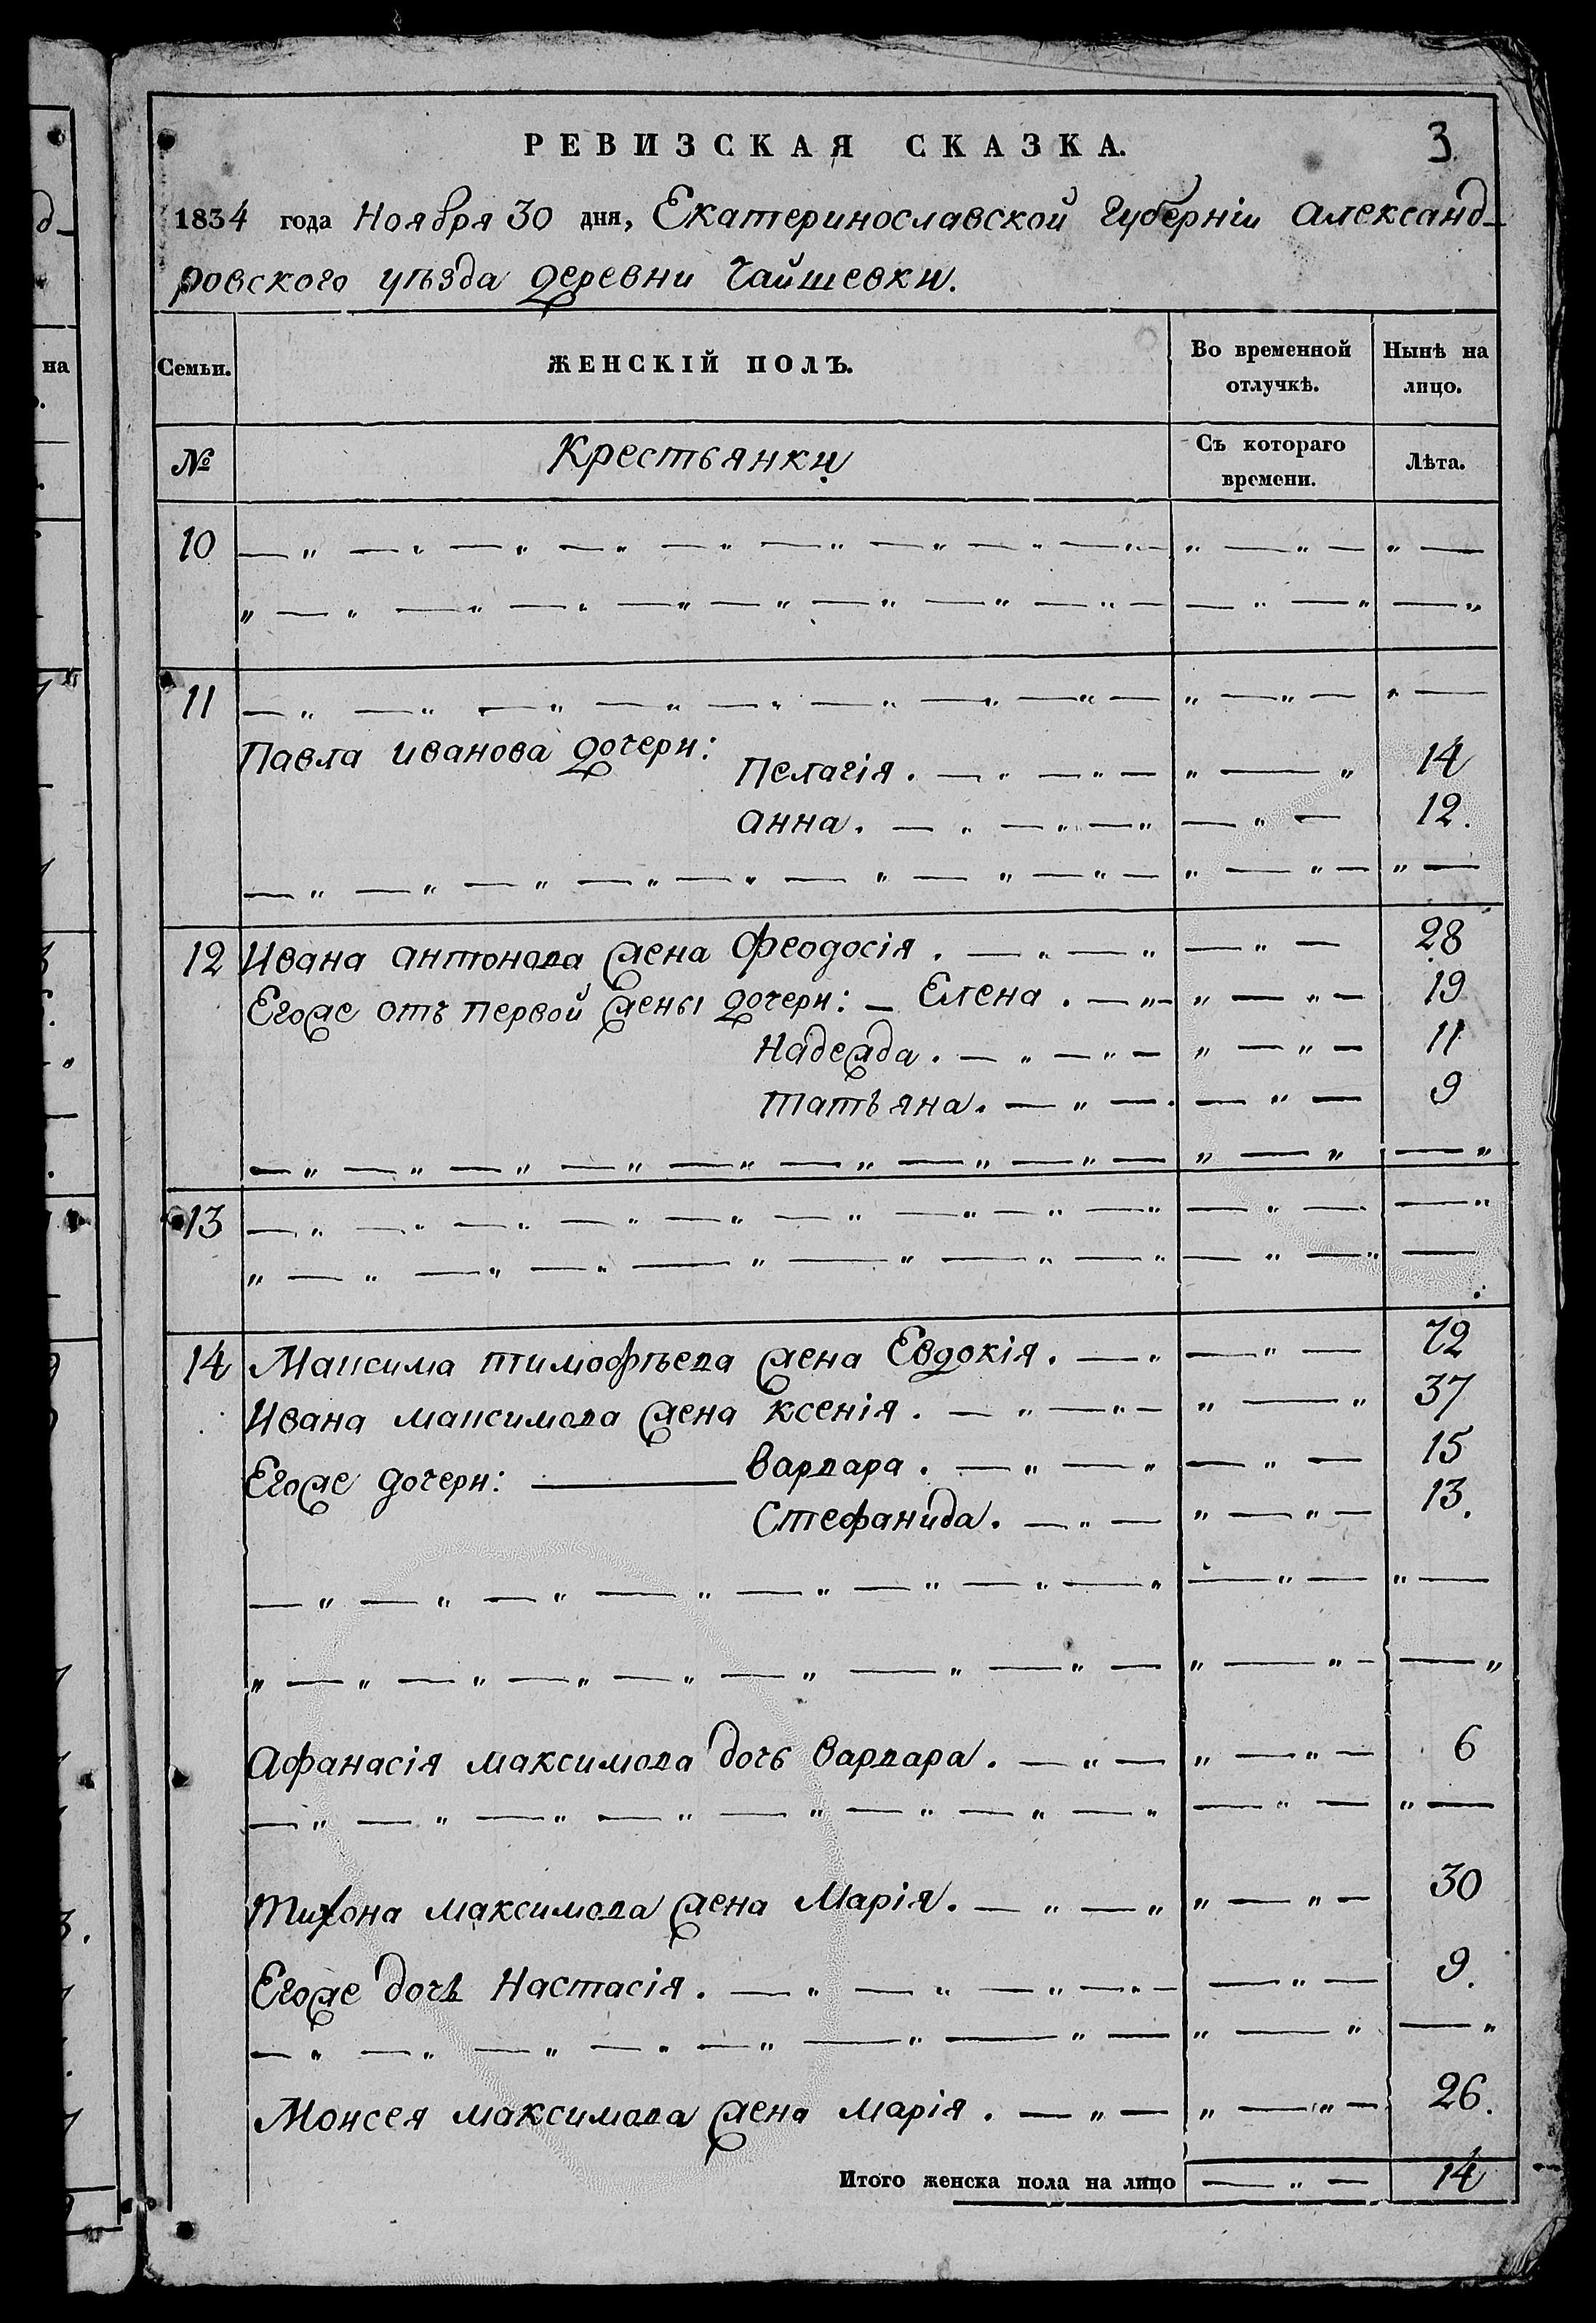 РЕВИЗСКАЯ СКАЗКА.
3.
1834 года Ноября 30 дня, Екатеринославской Губерніи Александ-
ровского уѣзда деревни Чайшевки.
Семьи.
ЖЕНСКІЙ ПОЛЪ.
Во временной отлучкѣ.
Нынѣ на лицо.
№
Крестьянки
Съ котораго времени.
Лѣта.
10
11
Павла Иванова дочери: Пелагія. 14
Анна. 12.
12 Ивана Антонова жена Феодосія. 28
Егоже отъ первой жены дочери: Елена. 19
Надежда. 11
Татьяна. 9
13
14 Максима Тимофѣева жена Евдокія. 72
Ивана Максимова жена Ксенія. 37
Егоже дочери: Варвара. 15
Стефанида. 13.
Афанасія Максимова дочь Варвара. 6
Тихона Максимова жена Марія. 30
Егоже дочь Настасія. 9.
Моисея Максимова жена Марія. 26.
Итого женска пола на лицо 14